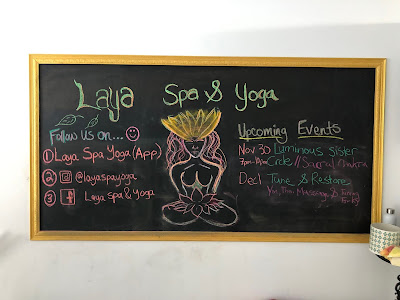 Laya Spa & Yoga
Follow Us on...
① Laya Spa Yoga (App)
② @layaspayoga
③ f Laya Spa & Yoga
Upcoming Events
Nov 30 Luminous Sister
Circle // Sacral Chakra
Dec 1 Tune & Restore
Yin, Thai Massage & Tuning
Forks)